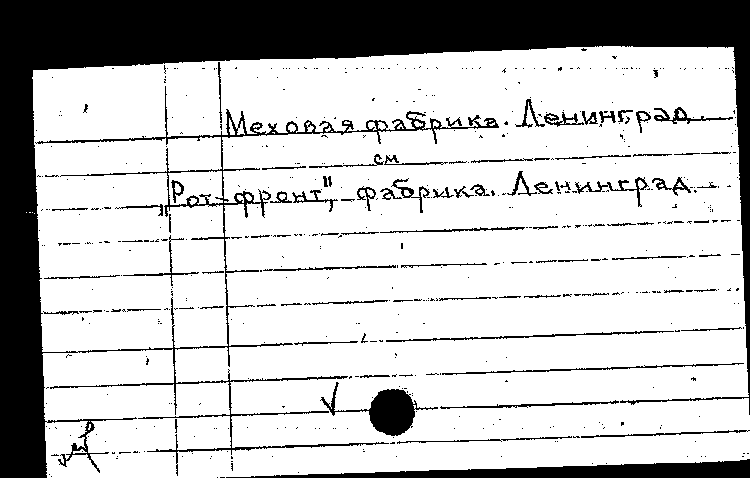 Меховая фабрика. Ленинград.
см
„Рот-фронт", фабрика. Ленинград.